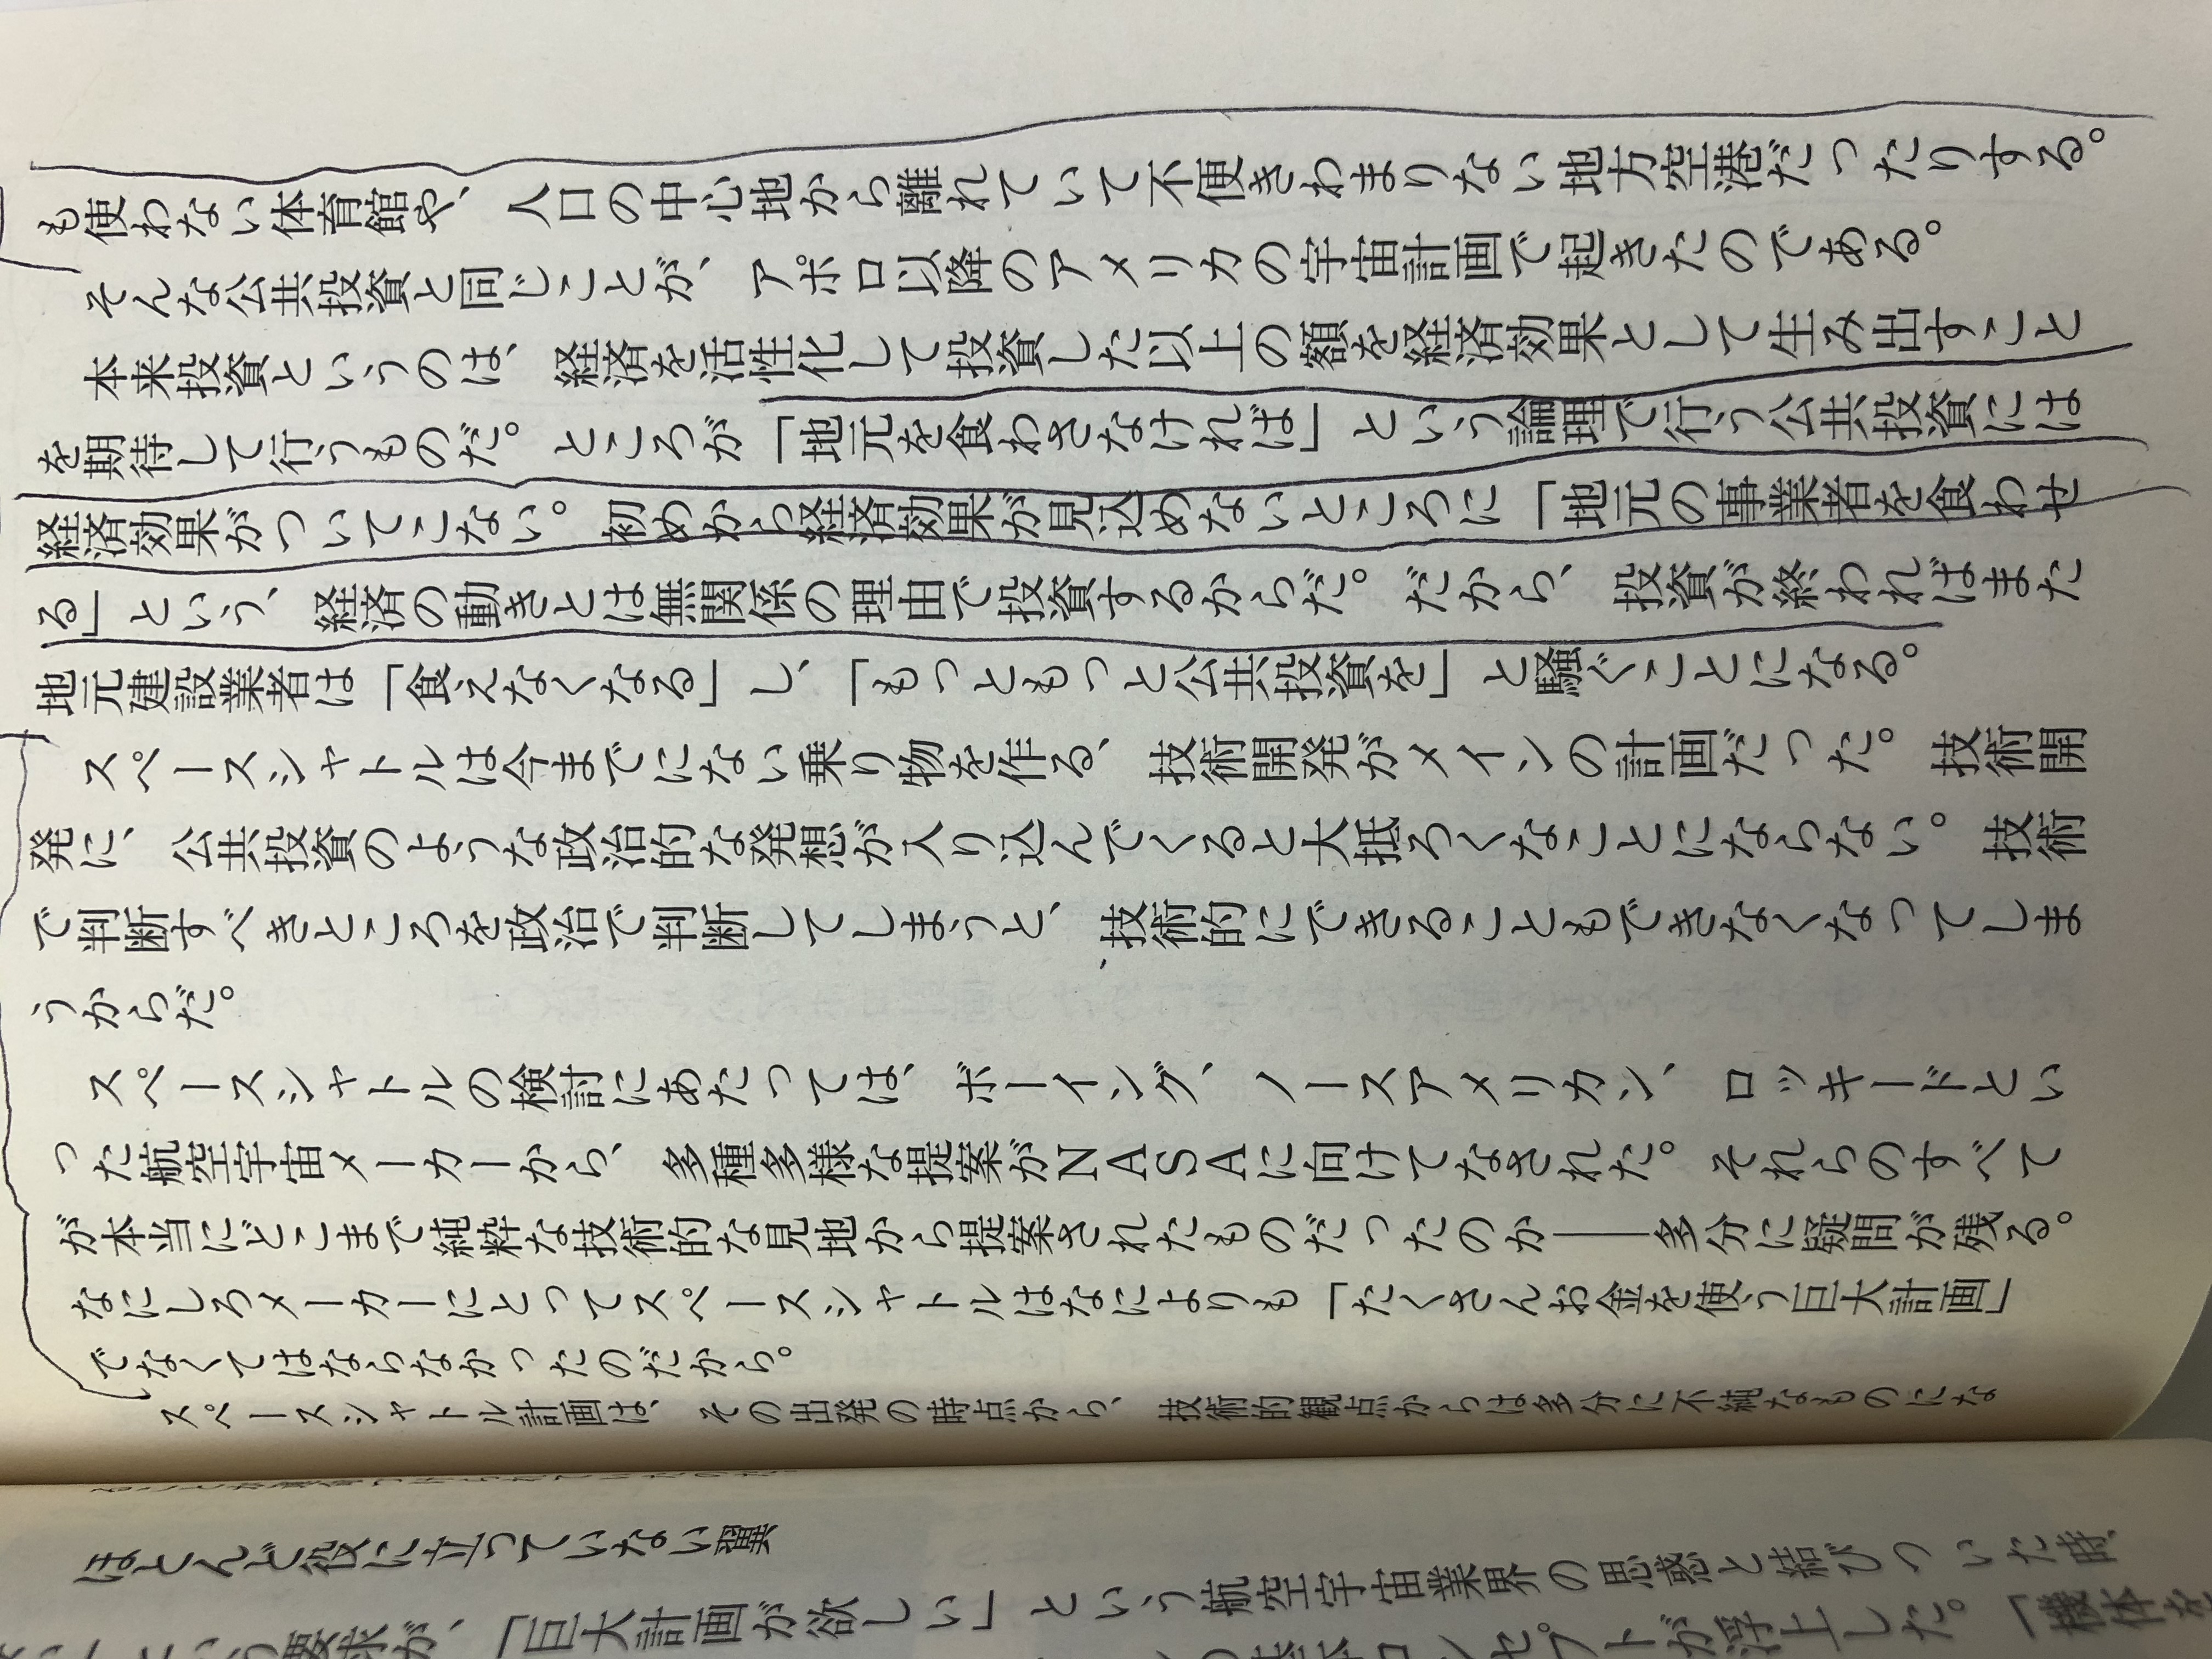 も使わない体育館や、人口の中心地から離れていて不便きわまりない地方空港だったりする。
そんな公共投資と同じことが、アポロ以降のアメリカの宇宙計画で起きたのである。
本来投資というのは、経済を活性化して投資した以上の額を経済効果として生み出すこと
を期待して行うものだ。ところが「地元を食わさなければ」という論理で行う公共投資には
経済効果がついてこない。初めから経済効果が見込めないところに「地元の事業者を食わせ
る」という、経済の動きとは無関係の理由で投資するからだ。だから、投資が終わればまた
地元建設業者は「食えなくなる」し、「もっともっと公共投資を」と騒ぐことになる。
スペースシャトルは今までにない乗り物を作る、技術開発がメインの計画だった。技術開
発に、公共投資のような政治的な発想が入り込んでくると大抵ろくなことにならない。技術
で判断すべきところを政治で判断してしまうと、技術的にできることもできなくなってしま
うからだ。
スペースシャトルの検討にあたっては、ボーイング、ノースアメリカン、ロッキードとい
った航空宇宙メーカーから、多種多様な提案がNASAに向けてなされた。それらのすべて
が本当にどこまで純粋な技術的な見地から提案されたものだったのか――多分に疑問が残る。
なにしろメーカーにとってスペースシャトルはなによりも「たくさんお金を使う巨大計画」
でなくてはならなかったのだから。
スペースシャトル計画は、その出発の時点から、技術的観点からは多分に不純なものにな
ほとんど役に立っていない翼
「巨大計画が欲しい」という航空宇宙業界の思惑と結びついた時、
コンセプトが浮上した。「機体を